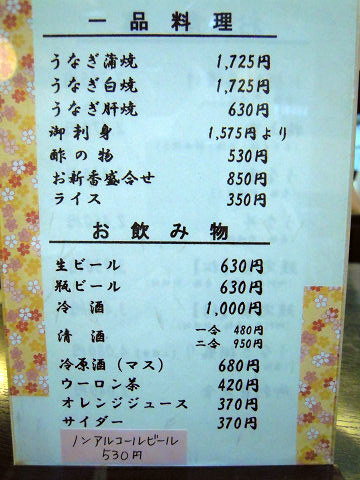 一品料理
うなぎ蒲焼 1,725円
うなぎ白焼 1,725円
うなぎ肝焼 630円
御刺身 1,575円より
酢の物 530円
お新香盛合せ 850円
ライス 350円
お飲み物
生ビール 630円
瓶ビール 630円
冷酒 1,000円
清酒 一合 480円
二合 950円
冷原酒(マス) 680円
ウーロン茶 420円
オレンジジュース 370円
サイダー 370円
ノンアルコールビール
530円